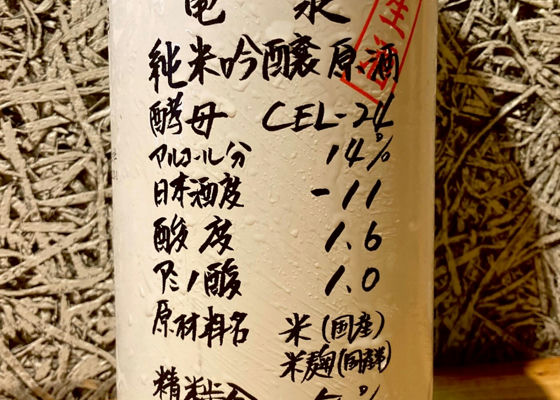 亀 泉
生酒
純米吟醸原酒
酵母 CEL-24
アルコール分 14%
日本酒度 -11
酸度 1.6
アミノ酸 1.0
原材料名 米(国産)
米麹(国産米)
精米歩合